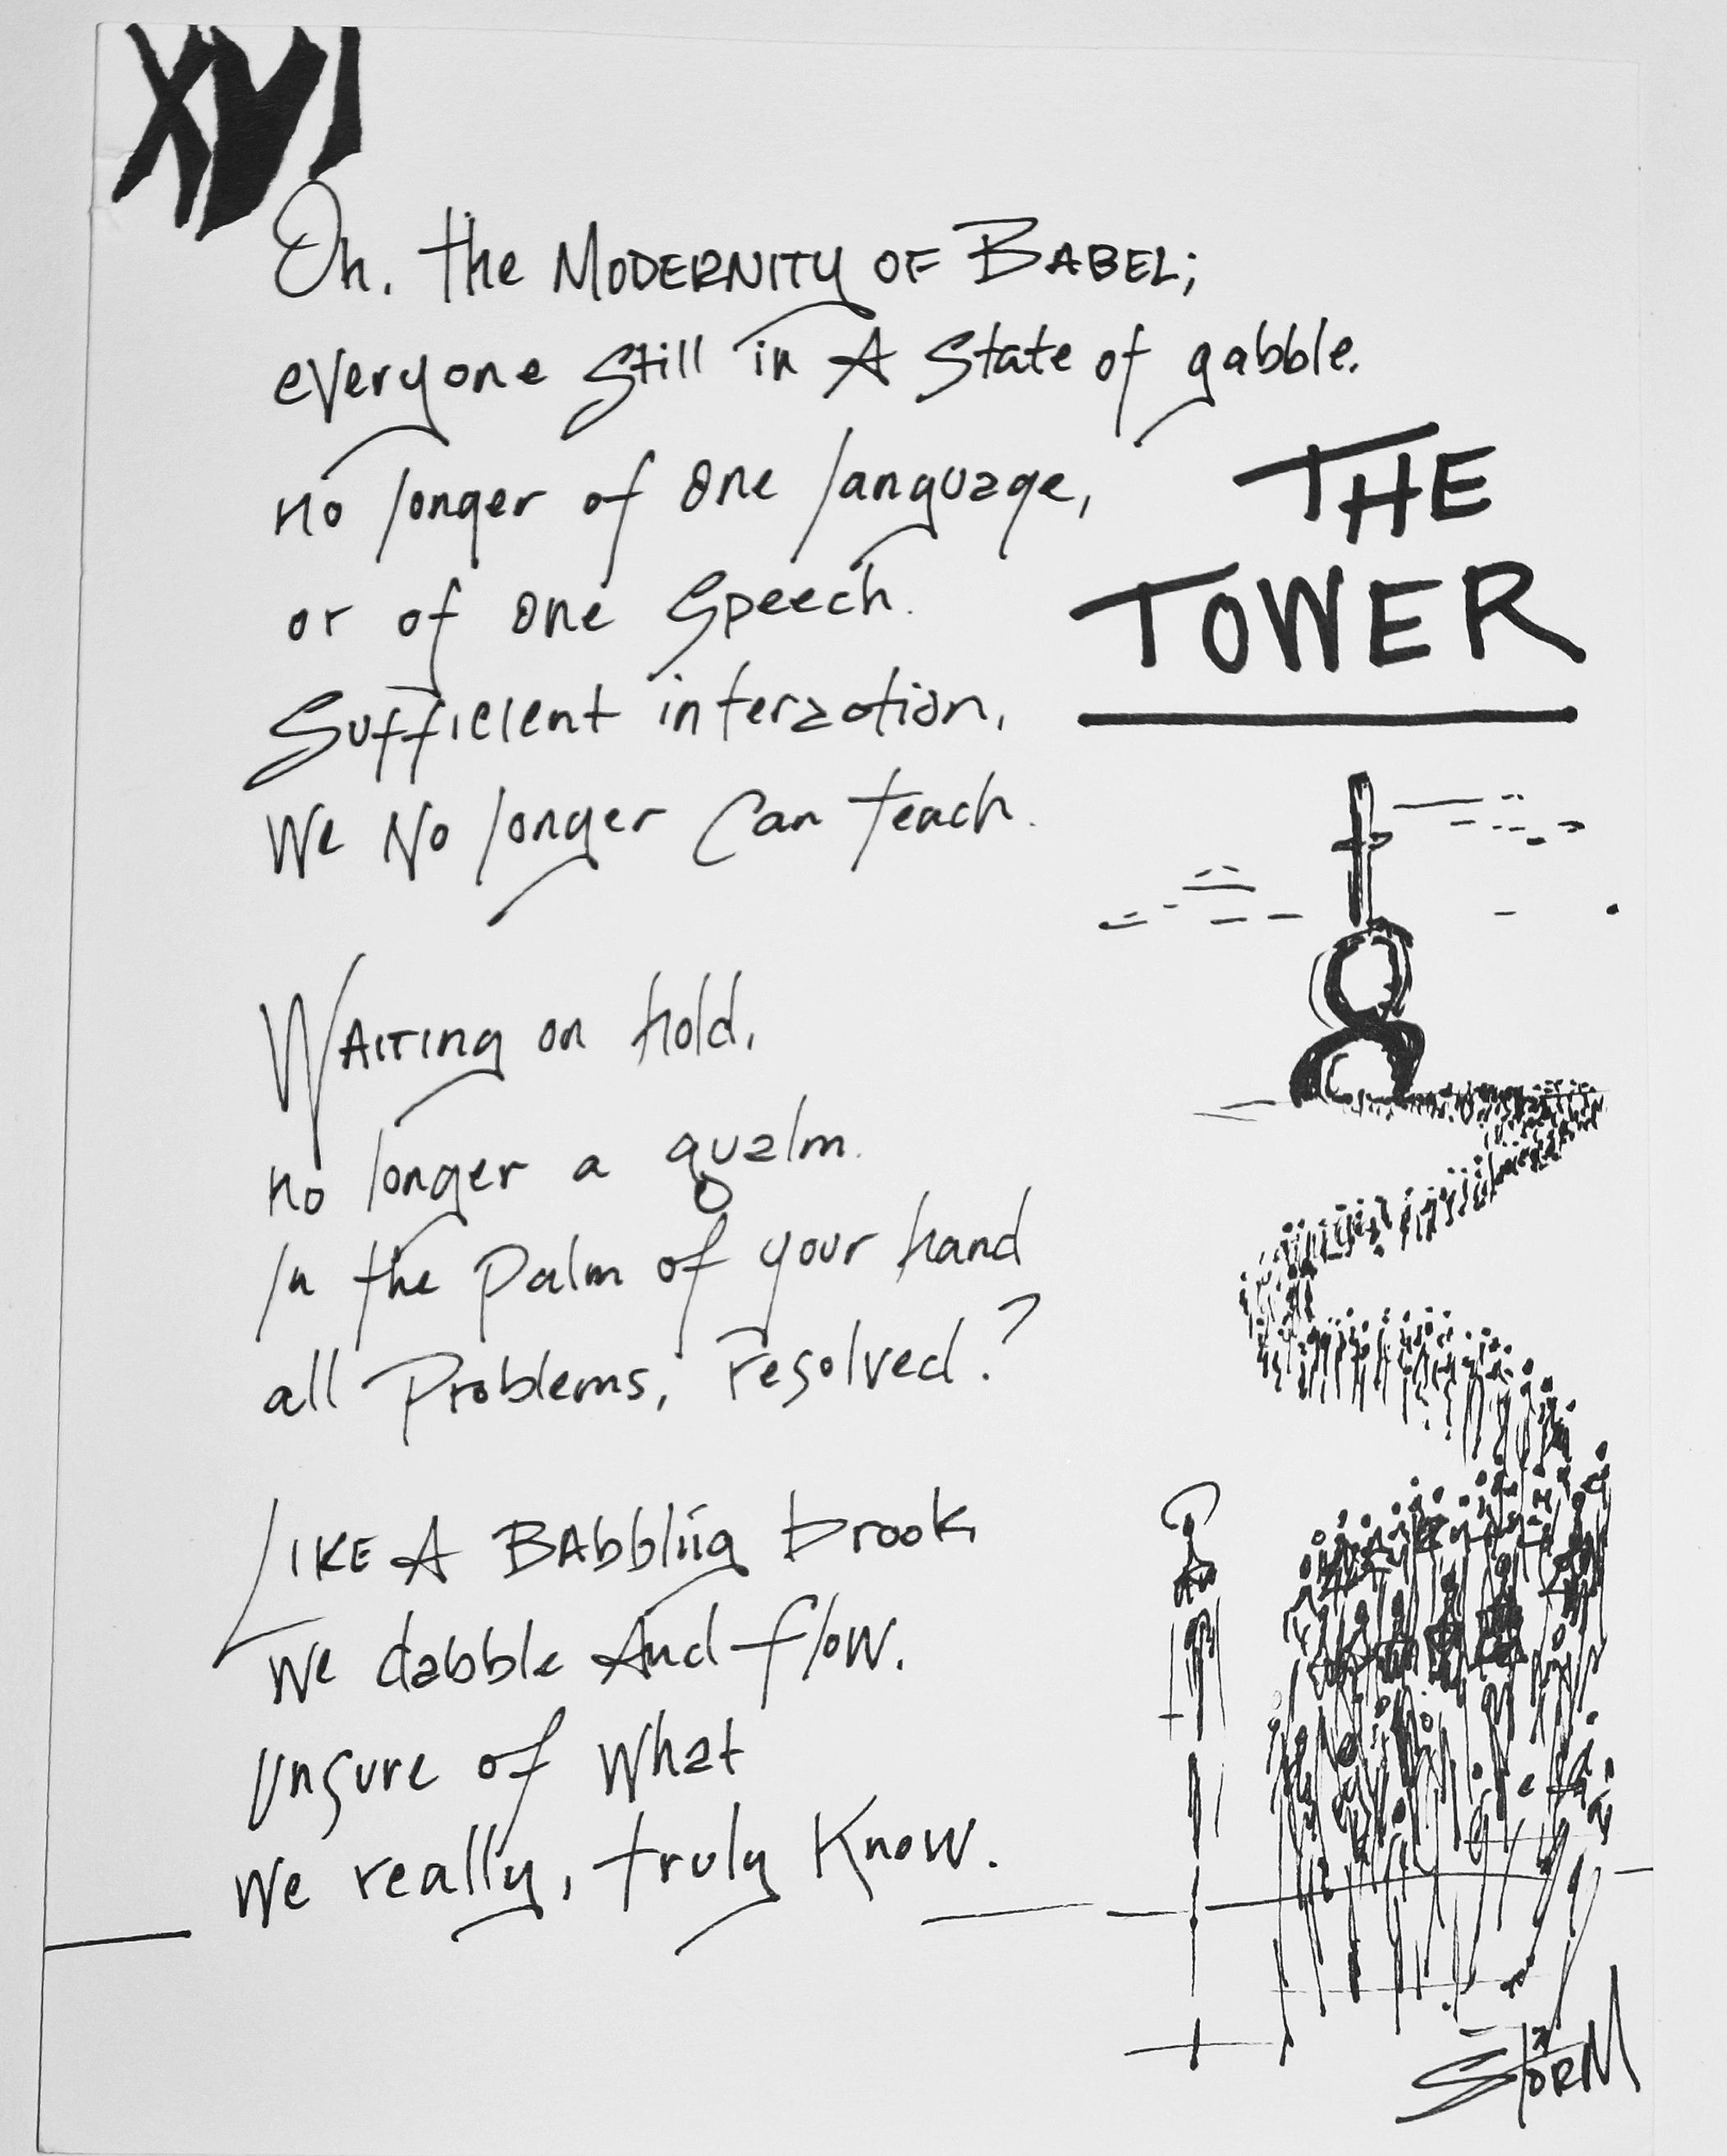 XVI
Oh, the MODERNITY OF BABEL;
everyone still in A State of gabble.
no longer of one language,
or of one speech.
Sufficient interaction,
We No longer Can teach.
THE
TOWER
WAITING on hold,
no longer a qualm.
In the palm of your hand
all Problems, resolved?
LIKE A BAbbling brook,
We dabble And flow.
Unsure of What
We really, truly Know.
STORM